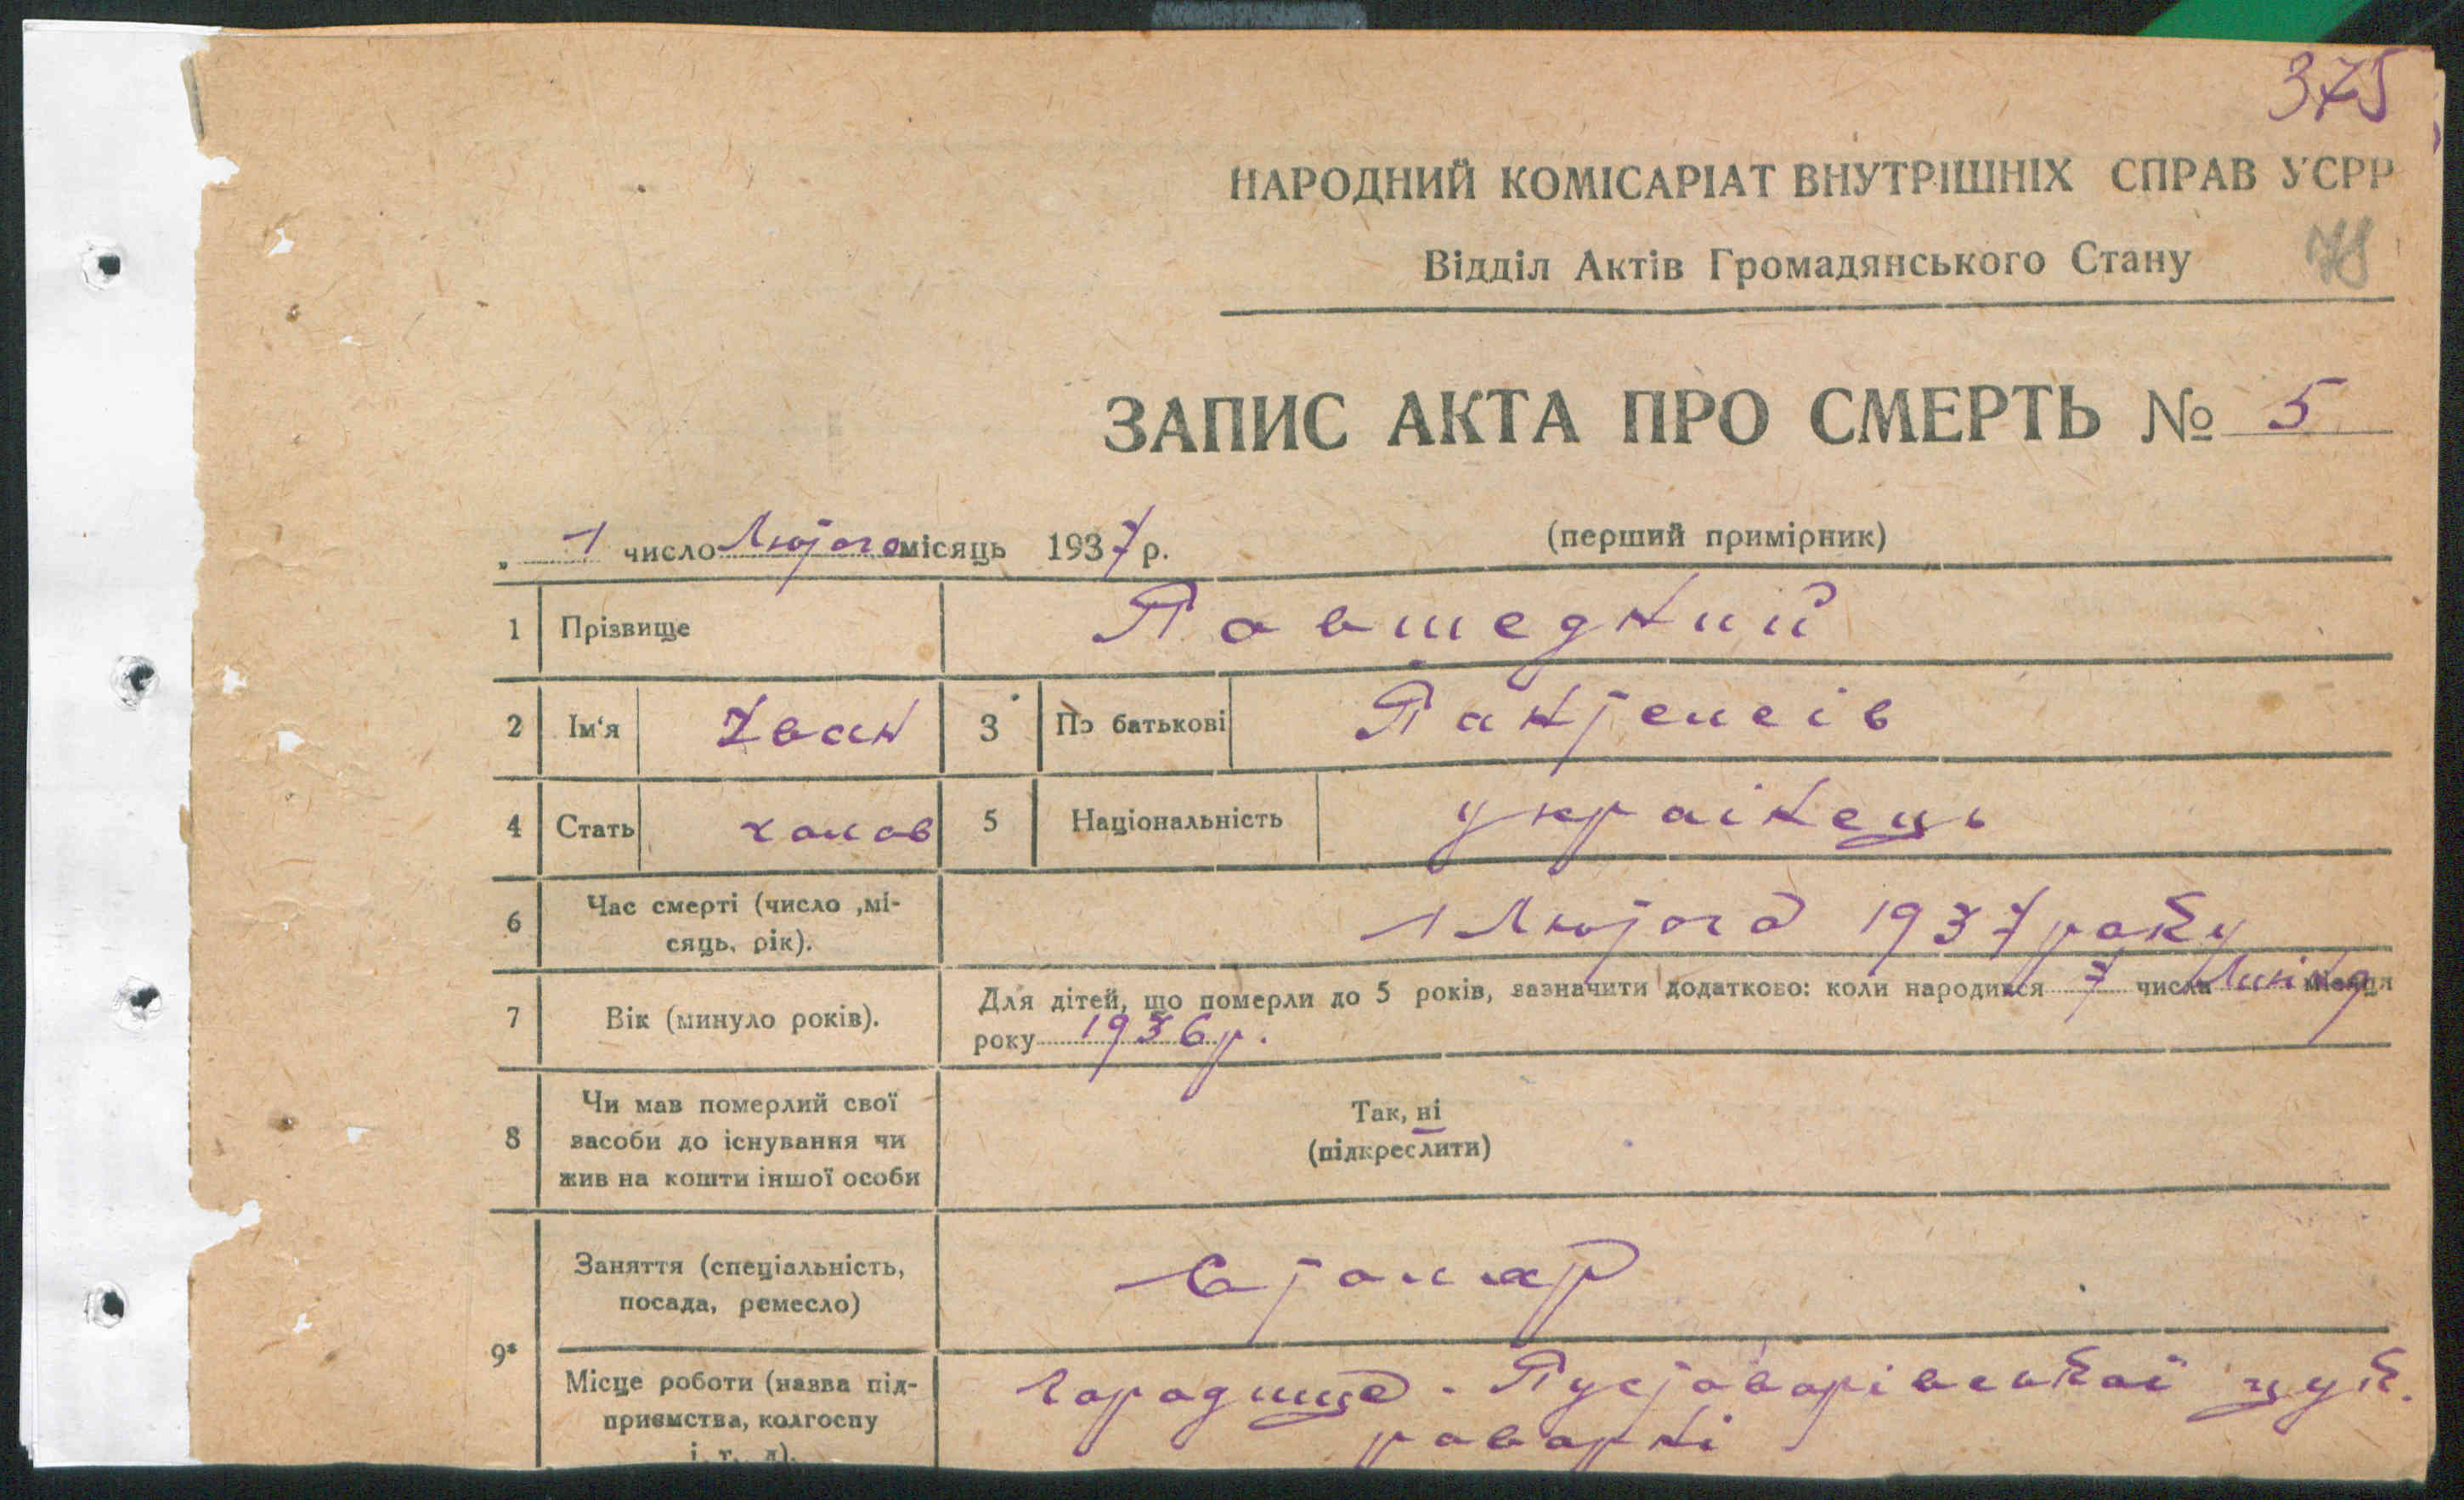 375
НАРОДНИЙ КОМІСАРІАТ ВНУТРІШНІХ СПРАВ УСРР
Відділ Актів Громадянського Стану
ЗАПИС АКТА ПРО СМЕРТЬ № 5
„ 1 число Лютого місяць 1937 р.
(перший примірник)
1 Прізвище Повшедний
2 Ім'я Іван 3 По батькові Пантелеів
4 Стать чолов 5 Національність украінець
6 Час смерті (число ,мі-
сяць, рік).
1 Лютого 1937 року
7 Вік (минуло років).
Для дітей, що померли до 5 років, зазначити додатково: коли народився 7 числа місяця
року 1936 р.
8 Чи мав померлий свої
засоби до існування чи
жив на кошти іншої особи
Так, ні
(підкреслити)
9* Заняття (спеціальність,
посада, ремесло)
столяр
Місце роботи (назва під-
приємства, колгоспу
і. т. д).
Городище-Пустоварівськоі цук.
роварні